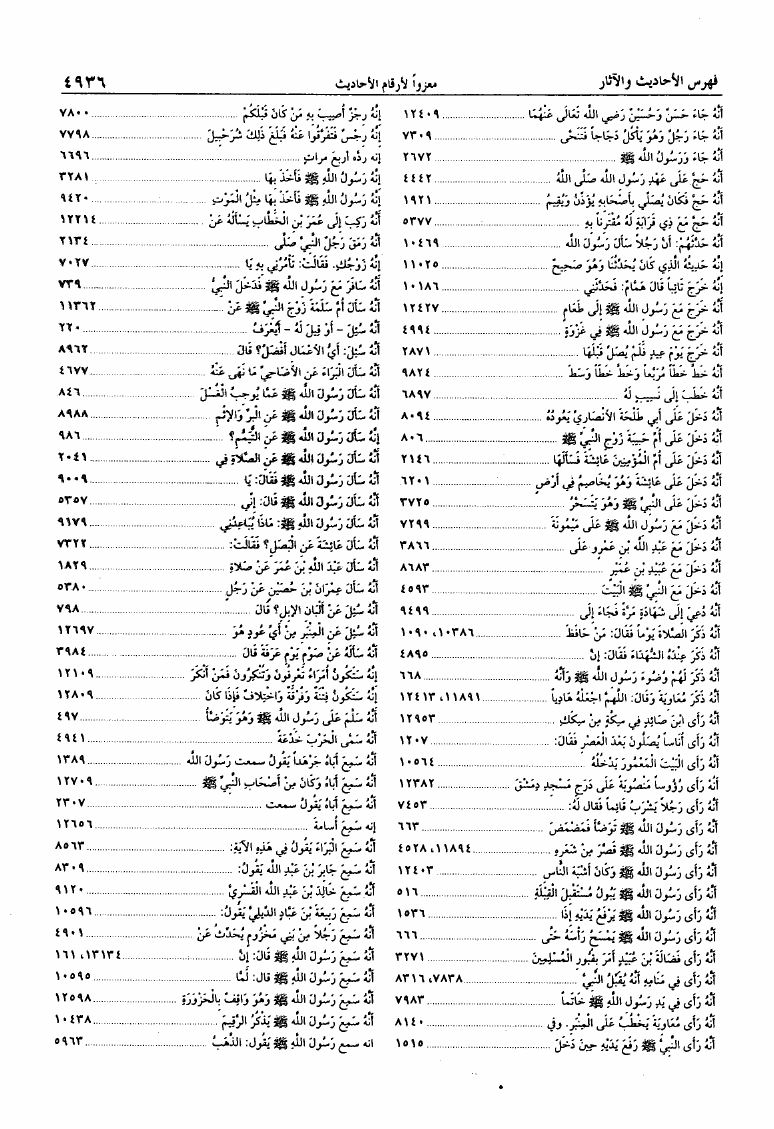 فهرس الأحاديث والآثار
معزواً لأرقام الأحاديث
٤٩٣٦
أَنَّهُ جَاءَ حَسَنٌ وَحُسَيْنٌ رَضِيَ اللَّه تَعَالَى عَنْهُمَا ........ ١٢٤٠٩
أَنَّهُ جَاءَ رَجُلٌ وَهُوَ يَأْكُلُ دَجَاجاً فَتَنَحَّى ........ ٧٣٠٩
أَنَّهُ جَاءَ وَرَسُولُ اللَّه ﷺ ........ ٢٦٧٢
أَنَّهُ حَجَّ عَلَى عَهْدِ رَسُولِ اللَّه صَلَّى اللَّهُ ........ ٤٤٤٢
أَنَّهُ حَجَّ فَكَانَ يُصَلِّي بِأَصْحَابِهِ يُؤَذِّنُ وَيُقِيمُ ........ ١٩٢١
أَنَّهُ حَجَّ مَعَ ذِي قَرَابَةٍ لَهُ مُقْتَرِناً بِهِ ........ ٥٣٧٧
أَنَّهُ حَدَّثَهُمْ: أَنَّ رَجُلاً سَأَلَ رَسُولَ اللَّه ........ ١٠٤٦٩
إِنَّهُ حَدِيثُهُ الَّذِي كَانَ يُحَدِّثُنَا وَهُوَ صَحِيحٌ ........ ١١٠٢٥
إِنَّهُ خَرَجَ تَائِباً قَالَ هَمَّامٌ: فَحَدَّثَنِي ........ ١٠١٨٦
أَنَّهُ خَرَجَ مَعَ رَسُولِ اللَّه ﷺ إِلَى طَعَامٍ ........ ١٢٤٢٧
أَنَّهُ خَرَجَ مَعَ رَسُولِ اللَّه ﷺ فِي غَزْوَةٍ ........ ٤٩٩٤
أَنَّهُ خَرَجَ يَوْمَ عِيدٍ فَلَمْ يُصَلِّ قَبْلَهَا ........ ٢٨٧١
أَنَّهُ خَطَّ خَطّاً مُرَبَّعاً وَخَطَّ خَطّاً وَسَطَ ........ ٩٨٢٤
أَنَّهُ خَطَبَ إِلَى نَسِيبٍ لَهُ ........ ٦٨٩٧
أَنَّهُ دَخَلَ عَلَى أَبِي طَلْحَةَ الأَنْصَارِيِّ يَعُودُهُ ........ ٨٠٩٤
أَنَّهُ دَخَلَ عَلَى أُمِّ حَبِيبَةَ زَوْجِ النَّبِيِّ ﷺ ........ ٨٠٦
أَنَّهُ دَخَلَ عَلَى أُمِّ الْمُؤْمِنِينَ عَائِشَةَ فَسَأَلَهَا ........ ٢١٤٦
أَنَّهُ دَخَلَ عَلَى عَائِشَةَ وَهُوَ يُخَاصِمُ فِي أَرْضٍ ........ ٦٢٠١
أَنَّهُ دَخَلَ عَلَى النَّبِيِّ ﷺ وَهُوَ يَتَسَحَّرُ ........ ٣٧٢٥
أَنَّهُ دَخَلَ مَعَ رَسُولِ اللَّه ﷺ عَلَى مَيْمُونَةَ ........ ٧٢٩٩
أَنَّهُ دَخَلَ مَعَ عَبْدِ اللَّه بْنِ عَمْرٍو عَلَى ........ ٣٨٦٦
أَنَّهُ دَخَلَ مَعَ عُبَيْدِ بْنِ عُمَيْرٍ ........ ٨٦٨٣
أَنَّهُ دَخَلَ مَعَ النَّبِيِّ ﷺ الْبَيْتَ ........ ٤٥٩٣
أَنَّهُ دُعِيَ إِلَى شَهَادَةٍ مَرَّةً فَجَاءَ إِلَى ........ ٩٤٩٩
أَنَّهُ ذَكَرَ الصَّلاَةَ يَوْماً فَقَالَ: مَنْ حَافَظَ ........ ١٠٣٨٦، ١٠٩٠
أَنَّهُ ذَكَرَ عِنْدَهُ الشُّهَدَاءَ فَقَالَ: إِنَّ ........ ٤٨٩٥
أَنَّهُ ذَكَرَ لَهُمْ وُضُوءَ رَسُولِ اللَّه ﷺ وَأَنَّهُ ........ ٦٦٨
أَنَّهُ ذَكَرَ مُعَاوِيَةَ وَقَالَ: اللَّهُمَّ اجْعَلْهُ هَادِياً ........ ١١٨٩١، ١٢٤١٣
أَنَّهُ رَأَى ابْنَ صَائِدٍ فِي سِكَّةٍ مِنْ سِكَكِ ........ ١٢٩٥٣
أَنَّهُ رَأَى أُنَاساً يُصَلُّونَ بَعْدَ الْعَصْرِ فَقَالَ: ........ ١٢٠٧
أَنَّهُ رَأَى الْبَيْتَ الْمَعْمُورَ يَدْخُلُهُ ........ ١٠٥٦٤
أَنَّهُ رَأَى رُؤُوساً مَنْصُوبَةً عَلَى دَرَجِ مَسْجِدِ دِمَشْقَ ........ ١٢٣٨٢
أَنَّهُ رَأَى رَجُلاً يَشْرَبُ قَائِماً فَقَالَ لَهُ: ........ ٧٤٥٣
أَنَّهُ رَأَى رَسُولَ اللَّه ﷺ تَوَضَّأَ فَمَضْمَضَ ........ ٦٦٣
أَنَّهُ رَأَى رَسُولَ اللَّه ﷺ قَصَّرَ مِنْ شَعَرِهِ ........ ١١٨٩٤، ٤٥٢٨
أَنَّهُ رَأَى رَسُولَ اللَّه ﷺ وَكَانَ أَشْبَهَ النَّاسِ ........ ١٢٤٠٣
أَنَّهُ رَأَى رَسُولَ اللَّه ﷺ يَبُولُ مُسْتَقْبِلَ الْقِبْلَةِ ........ ٥١٦
أَنَّهُ رَأَى رَسُولَ اللَّه ﷺ يَرْفَعُ يَدَيْهِ إِذَا ........ ١٥٣٦
أَنَّهُ رَأَى رَسُولَ اللَّه ﷺ يَمْسَحُ رَأْسَهُ حَتَّى ........ ٦٦٦
أَنَّهُ رَأَى فَضَالَةَ بْنَ عُبَيْدٍ أَمَرَ بِقُبُورِ الْمُسْلِمِينَ ........ ٣٢٧١
أَنَّهُ رَأَى فِي مَنَامِهِ أَنَّهُ يُقَبِّلُ النَّبِيَّ ........ ٧٨٣٨، ٨٣١٦
أَنَّهُ رَأَى فِي يَدِ رَسُولِ اللَّهِ ﷺ خَاتَماً ........ ٧٩٨٣
أَنَّهُ رَأَى مُعَاوِيَةَ يَخْطُبُ عَلَى الْمِنْبَرِ. وفي ........ ٨١٤٠
أَنَّهُ رَأَى النَّبِيَّ ﷺ رَفَعَ يَدَيْهِ حِينَ دَخَلَ ........ ١٥١٥
إِنَّهُ رِجْزٌ أُصِيبَ بِهِ مَنْ كَانَ قَبْلَكُمْ ........ ٧٨٠٠
إِنَّهُ رِجْسٌ فَتَفَرَّقُوا عَنْهُ فَبَلَغَ ذَلِكَ شُرَحْبِيلَ ........ ٧٧٩٨
إنه ردّه أربع مرات ........ ٦٦٩٦
إِنَّهُ رَسُولُ اللَّهِ ﷺ فَأَخَذَ بِهَا ........ ٣٢٨١
إِنَّهُ رَسُولُ اللَّهِ ﷺ فَأَخَذَ بِهَا مِثْلُ الْمَوْتِ ........ ٩٤٢٠
أَنَّهُ رَكِبَ إِلَى عُمَرَ بْنِ الْخَطَّابِ يَسْأَلُهُ عَنْ ........ ١٢٢١٤
أَنَّهُ رَمَقَ رَجُلٌ النَّبِيَّ صَلَّى ........ ٢١٣٤
إِنَّهُ زَوْجُكِ. فَقَالَتْ: تَأْمُرُنِي بِهِ يَا ........ ٧٠٢٧
أَنَّهُ سَافَرَ مَعَ رَسُولِ اللَّه ﷺ فَدَخَلَ النَّبِيُّ ........ ٧٣٩
أَنَّهُ سَأَلَ أُمَّ سَلَمَةَ زَوْجَ النَّبِيِّ ﷺ عَنْ ........ ١١٣٦٢
أَنَّهُ سُئِلَ - أَوْ قِيلَ لَهُ - أَيُعْرَفُ ........ ٢٢٠
أَنَّهُ سُئِلَ: أَيُّ الأَعْمَالِ أَفْضَلُ؟ قَالَ ........ ٨٩٦٢
أَنَّهُ سَأَلَ الْبَرَاءَ عَنِ الأَضَاحِيِّ مَا نَهَى عَنْهُ ........ ٤٦٧٧
أَنَّهُ سَأَلَ رَسُولَ اللَّه ﷺ عَمَّا يُوجِبُ الْغُسْلَ ........ ٨٤٦
أَنَّهُ سَأَلَ رَسُولَ اللَّه ﷺ عَنِ الْبِرِّ وَالإِثْمِ ........ ٨٩٨٨
إِنَّهُ سَأَلَ رَسُولَ اللَّه ﷺ عَنِ التَّيَمُّمِ؟ ........ ٩٨٦
أَنَّهُ سَأَلَ رَسُولَ اللَّه ﷺ عَنِ الصَّلاَةِ فِي ........ ٢٠٤١
أَنَّهُ سَأَلَ رَسُولَ اللَّه ﷺ فَقَالَ: يَا ........ ٩٠٠٩
أَنَّهُ سَأَلَ رَسُولَ اللَّه ﷺ قَالَ: إِنِّي ........ ٥٣٥٧
أَنَّهُ سَأَلَ رَسُولَ اللَّه ﷺ: مَاذَا يُبَاعِدُنِي ........ ٩١٧٩
أَنَّهُ سَأَلَ عَائِشَةَ عَنِ الْبَصَلِ؟ فَقَالَتْ: ........ ٧٣٢٢
أَنَّهُ سَأَلَ عَبْدَ اللَّهِ بْنَ عُمَرَ عَنْ صَلاَةِ ........ ١٨٢٩
أَنَّهُ سَأَلَ عِمْرَانَ بْنَ حُصَيْنٍ عَنْ رَجُلٍ ........ ٥٣٨٠
أَنَّهُ سُئِلَ عَنْ أَلْبَانِ الإِبِلِ؟ قَالَ ........ ٧٩٨
أَنَّهُ سُئِلَ عَنِ الْمِنْبَرِ مِنْ أَيِّ عُودٍ هُوَ ........ ١٢٦٩٧
أَنَّهُ سَأَلَهُ عَنْ صَوْمِ يَوْمِ عَرَفَةَ قَالَ ........ ٣٩٨٤
إِنَّهُ سَتَكُونُ أُمَرَاءُ تَعْرِفُونَ وَتُنْكِرُونَ فَمَنْ أَنْكَرَ ........ ١٢١٠٩
إِنَّهُ سَتَكُونُ فِتْنَةٌ وَفُرْقَةٌ وَاخْتِلاَفٌ فَإِذَا كَانَ ........ ١٢٨٠٩
أَنَّهُ سَلَّمَ عَلَى رَسُولِ اللَّه ﷺ وَهُوَ يَتَوَضَّأُ ........ ٤٩٧
أَنَّهُ سَمَّى الْحَرْبَ خَدْعَةً ........ ٤٩٤١
أَنَّهُ سَمِعَ أَبَاهُ جَرْهَداً يَقُولُ سمعت رَسُولَ اللَّه ........ ١٣٨٩
أَنَّهُ سَمِعَ أَبَاهُ وَكَانَ مِنْ أَصْحَابِ النَّبِيِّ ﷺ ........ ١٢٧٠٩
أَنَّهُ سَمِعَ أَبَاهُ يَقُولُ سمعت ........ ٢٣٠٧
إنه سَمِعَ أُسامة ........ ١٢٦٥٦
أَنَّهُ سَمِعَ الْبَرَاءَ يَقُولُ فِي هَذِهِ الآيَةِ: ........ ٨٥٦٣
أَنَّهُ سَمِعَ جَابِرَ بْنَ عَبْدِ اللَّهِ يَقُولُ: ........ ٨٣٠٩
أَنَّهُ سَمِعَ خَالِدَ بْنَ عَبْدِ اللَّهِ الْقَسْرِيَّ ........ ٩١٢٠
أَنَّهُ سَمِعَ رَبِيعَةَ بْنَ عَبَّادٍ الدِّيلِيَّ يَقُولُ: ........ ١٠٥٩٦
أَنَّهُ سَمِعَ رَجُلاً مِنْ بَنِي مَخْزُومٍ يُحَدِّثُ عَنْ ........ ٤٩٠١
أَنَّهُ سَمِعَ رَسُولَ اللَّهِ ﷺ قَالَ: إِنَّ ........ ١٣١٣٤، ١٦١
أَنَّهُ سَمِعَ رَسُولَ اللَّهِ ﷺ قال: لَمَّا ........ ١٠٥٩٥
أَنَّهُ سَمِعَ رَسُولَ اللَّهِ ﷺ وَهُوَ وَاقِفٌ بِالْحَزْوَرَةِ ........ ١٢٥٩٨
أَنَّهُ سَمِعَ رَسُولَ اللَّهِ ﷺ يَذْكُرُ الرَّقِيمَ ........ ١٠٤٣٨
انه سمع رَسُولَ اللَّهِ ﷺ يَقُول: الذَّهَبُ ........ ٥٩٦٣